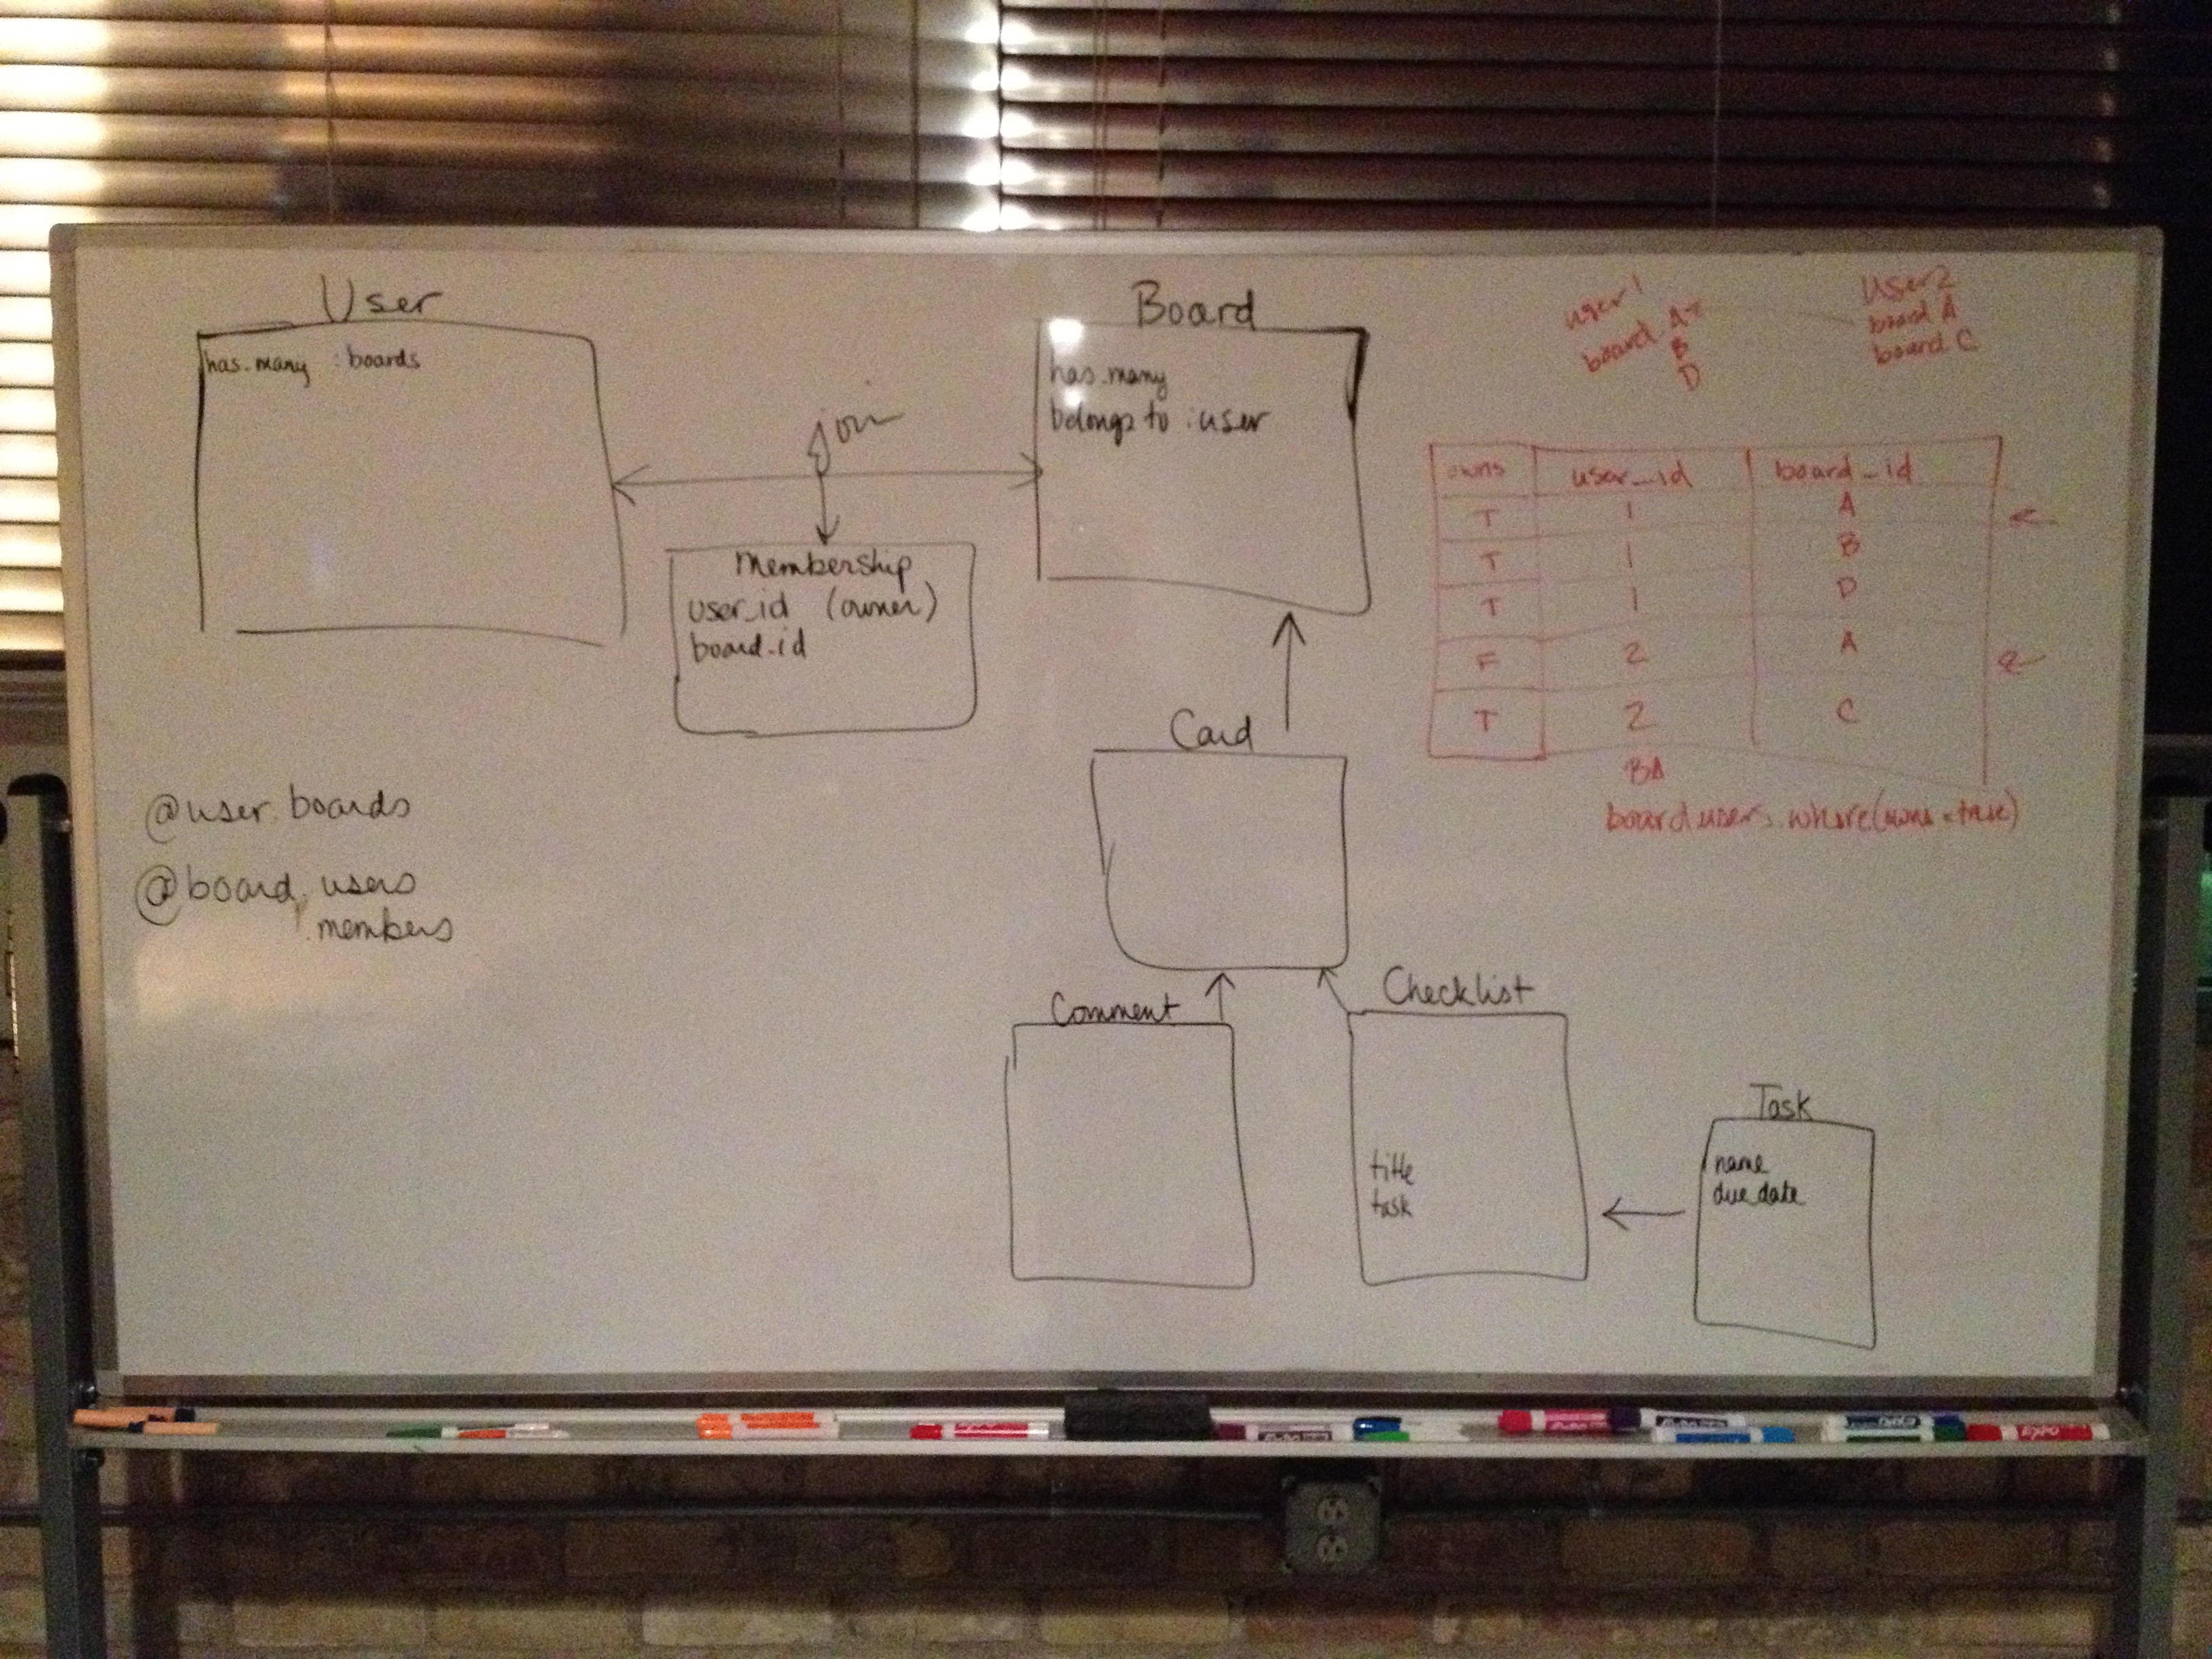 User
has_many :boards
join
Membership
user_id (owner)
board_id
Board
has_many
belongs to :user
user 1
board A
B
D
User 2
board A
board C
owns user_id board_id
T 1 A
T 1 B
T 1 D
F 2 A
T 2 C
BA
board.users.where(owns = true)
@user.boards
@board.users
.members
Card
Comment
Checklist
title
task
Task
name
due date
EXPO